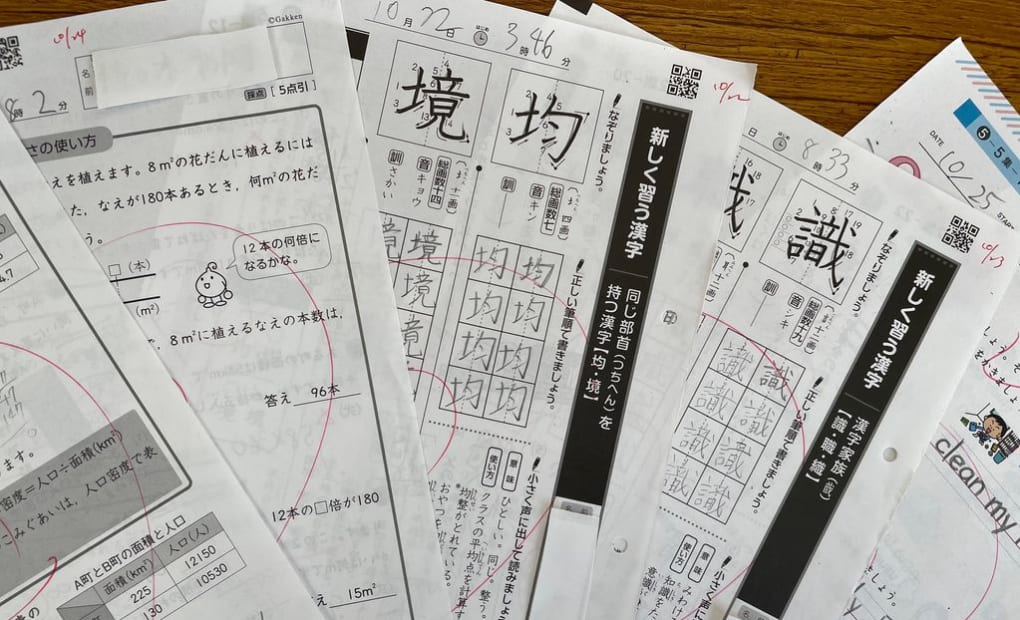 ©Gakken
10/24
名前
8時2分
採点 [5点引]
さの使い方
えを植えます。8m²の花だんに植えるには
た，なえが180本あるとき，何m²の花だ
う。
□(本)
(m²)
12本の何倍に
なるかな。
8m²に植えるなえの本数は，
答え 96本
12本の□倍が180
え 15m²
密度＝人口÷面積(km²)
こみぐあいは，人口密度で表
ます。
A町とB町の面積と人口
面積(km²) 人口(人)
225 12150
130 10530
10月22日
3時46分
はじめ
10/22
新しく習う漢字
同じ部首(つちへん)を
持つ漢字【均・境】
なぞりましょう。
均
境
総画数七
音 キン
訓 ―
総画数十四
音 キョウ
訓 さかい
正しい筆順で書きましょう。
均 均
均 均
均 均
均 均
境
境
境
小さく声に出して読みましょう
意味 ひとしい。同じ。整う。
使い方 クラスの平均点を計算す
均整がとれている。
おやつを
日
8時33分
はじめ
10/23
新しく習う漢字
漢字家族
【識・職・織】
なぞりましょう。
識
総画数十九
音 シキ
訓 ―
正しい筆順で書きましょう。
識 識
識 識
識 識
識 識
小さく声に
意味 みわけ
使い方 知識をた
意識
DATE 10/25
START
clean my